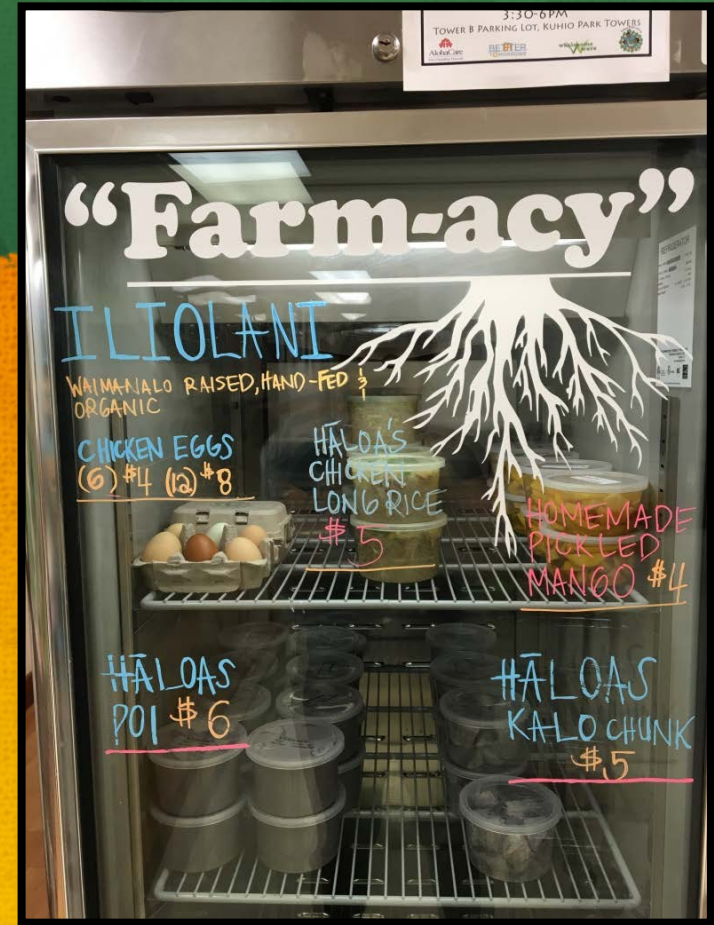 3:30-6PM
TOWER B PARKING LOT, KUHIO PARK TOWERS
AlohaCare
BETTER
"Farm-acy"
REFRIGERATOR
ILIOLANI
WAIMANALO RAISED, HAND-FED &
ORGANIC
CHICKEN EGGS
(6) $4 (12) $8
HĀLOA'S
CHICKEN
LONG RICE
$5
HOMEMADE
PICKLED
MANGO $4
HĀLOAS
POI $6
HĀLOAS
KALO CHUNK
$5